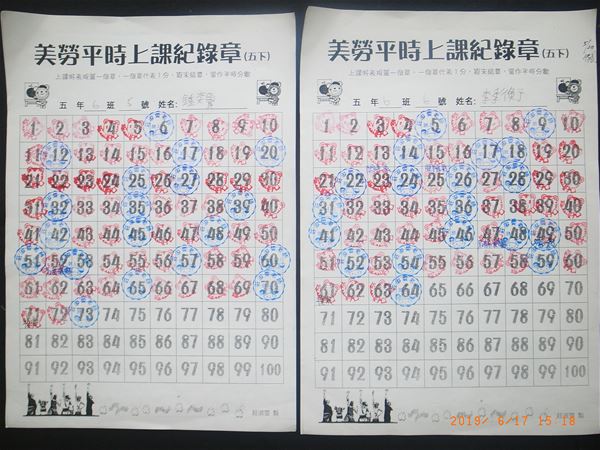 美勞平時上課紀錄章(五下)
上課時表現蓋一個章，一個章代表1分，期末結算，當作平時分數
五 年 6 班 5 號 姓名:
1 2 3 4 5 6 7 8 9 10
11 12 13 14 15 16 17 18 19 20
21 22 23 24 25 26 27 28 29 30
31 32 33 34 35 36 37 38 39 40
41 42 43 44 45 46 47 48 49 50
51 52 53 54 55 56 57 58 59 60
61 62 63 64 65 66 67 68 69 70
71 72 73 74 75 76 77 78 79 80
81 82 83 84 85 86 87 88 89 90
91 92 93 94 95 96 97 98 99 100
美勞平時上課紀錄章(五下)
上課時表現蓋一個章，一個章代表1分，期末結算，當作平時分數
五 年 6 班 6 號 姓名:
1 2 3 4 5 6 7 8 9 10
11 12 13 14 15 16 17 18 19 20
21 22 23 24 25 26 27 28 29 30
31 32 33 34 35 36 37 38 39 40
41 42 43 44 45 46 47 48 49 50
51 52 53 54 55 56 57 58 59 60
61 62 63 64 65 66 67 68 69 70
71 72 73 74 75 76 77 78 79 80
81 82 83 84 85 86 87 88 89 90
91 92 93 94 95 96 97 98 99 100
2019/ 6/17 15:18